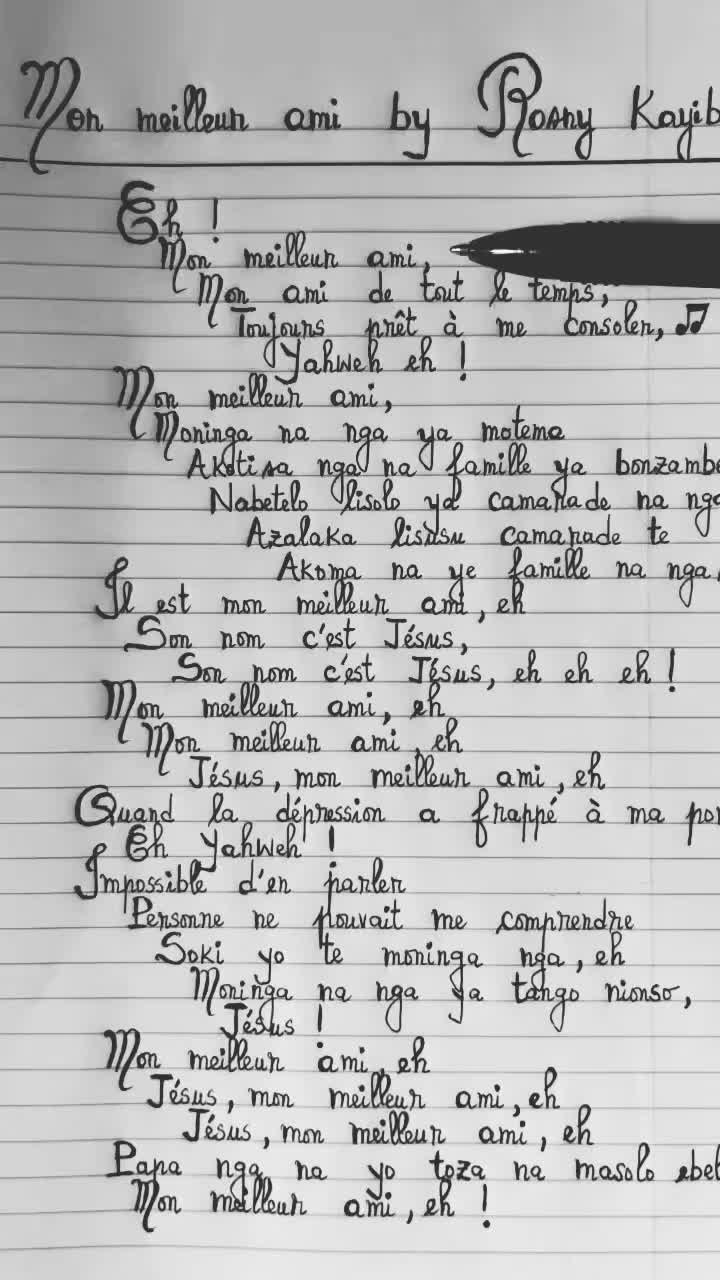 Mon meilleur ami by Rosny Kayib
Eh !
Mon meilleur ami,
Mon ami de tout le temps,
Toujours prêt à me consoler, 🎵
Yahweh eh !
Mon meilleur ami,
Moninga na nga ya motema
Akotisa nga na famille ya bonzambe
Nabetelo lisolo ya camarade na nga
Azalaka lisusu camarade te
Akoma na ye famille na nga,
Il est mon meilleur ami, eh
Son nom c'est Jésus,
Son nom c'est Jésus, eh eh eh !
Mon meilleur ami, eh
Mon meilleur ami, eh
Jésus, mon meilleur ami, eh
Quand la dépression a frappé à ma por
Eh Yahweh !
Impossible d'en parler
Personne ne pouvait me comprendre
Soki yo te moninga nga, eh
Moninga na nga ya tango nionso,
Jésus !
Mon meilleur ami, eh
Jésus, mon meilleur ami, eh
Jésus, mon meilleur ami, eh
Papa nga na yo toza na masolo ebel
Mon meilleur ami, eh !